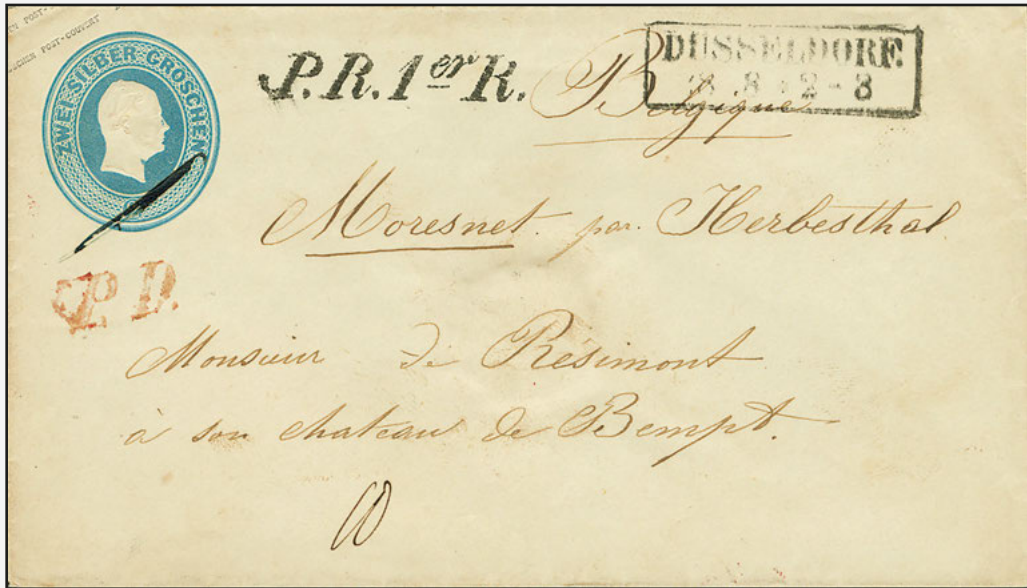 POST-COUVERT
ZWEI SILBER GROSCHEN
P.R.1er R.
DUSSELDORF.
2-3
Belgique
Moresnet par Herbesthal
P.D.
Monsieur de Résimont
à son chateau de Bempt.